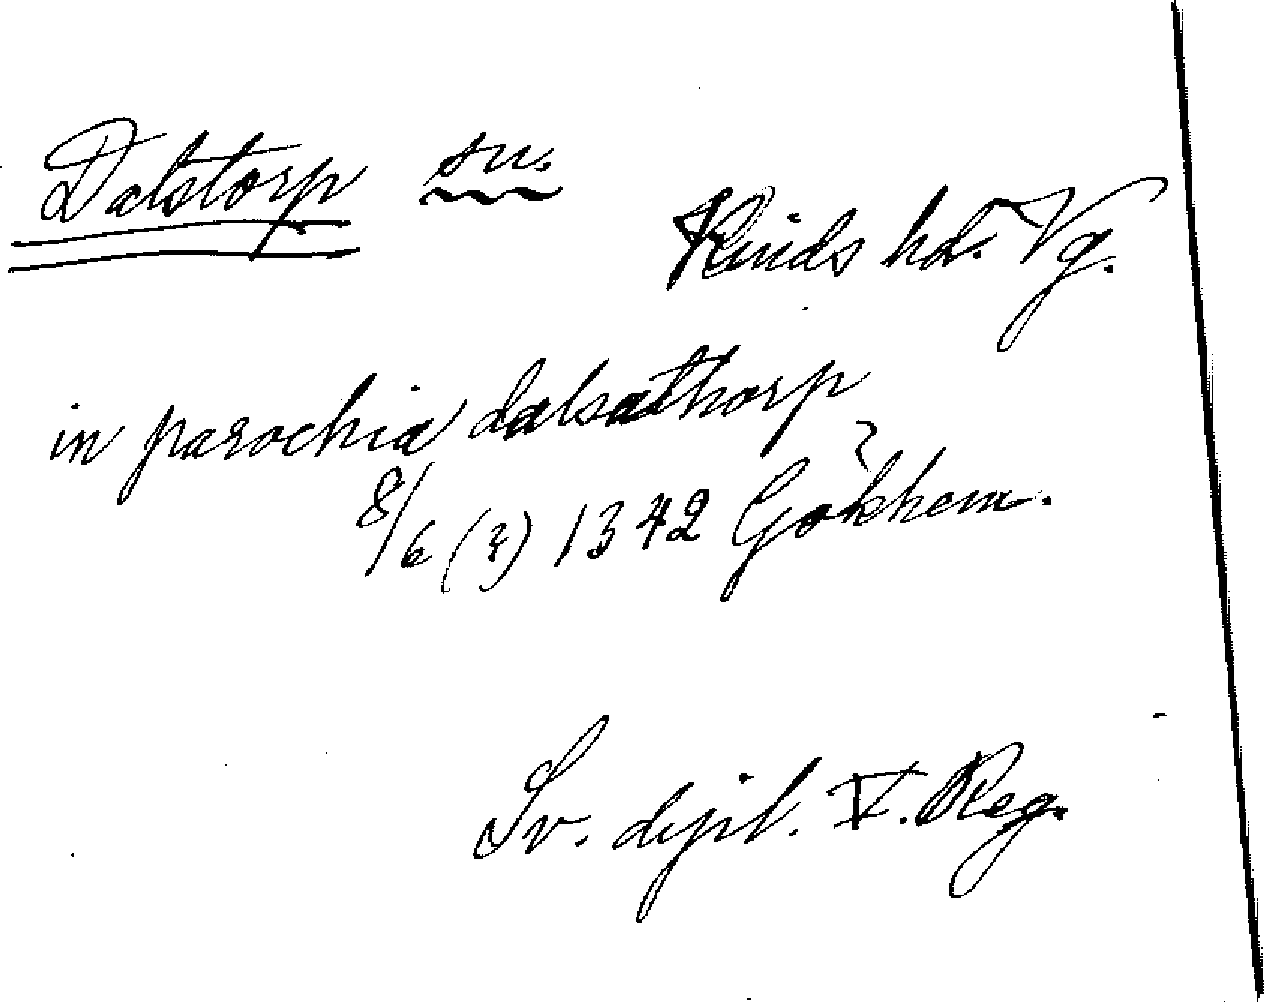 Dalstorp sn.
Kinds hd. Vg.
in parochia dalsathorp
8/6 (?) 1342 Gökhem.
Sv. dipl. V. Reg.